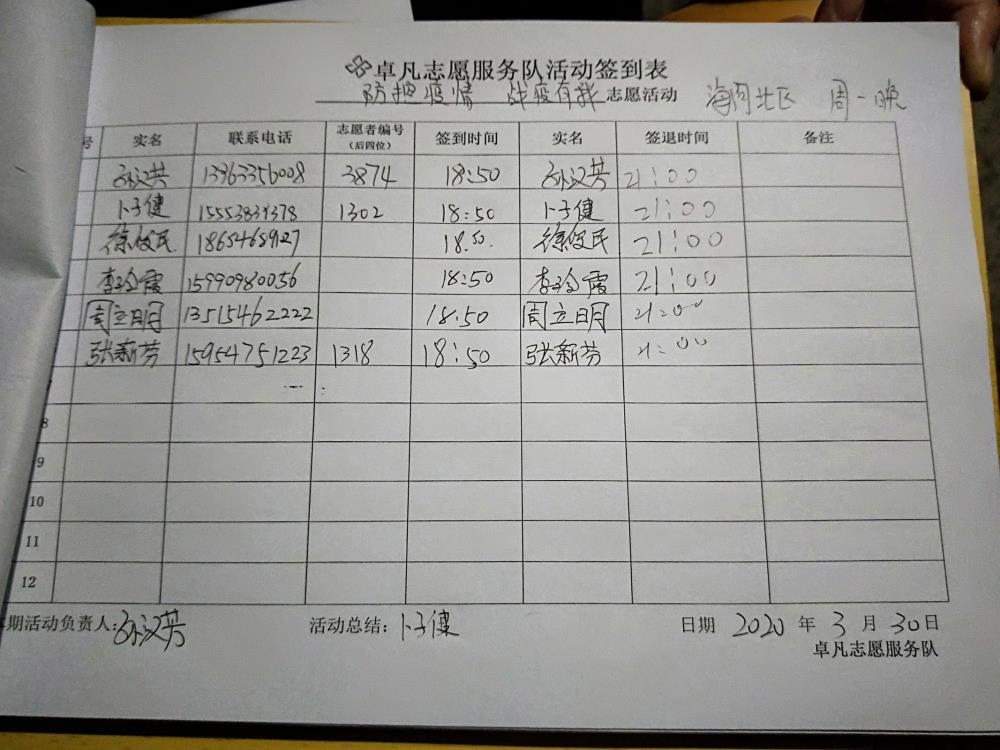 卓凡志愿服务队活动签到表
防控疫情 战疫有我 志愿活动 海河北区 周一晚
号 实名 联系电话 志愿者编号（后四位） 签到时间 实名 签退时间 备注
孙汉芳 13963356008 3874 18:50 孙汉芳 21:00
卜子健 1302 18:50 卜子健 21:00
徐俊民 18654659127 18.50. 徐俊民 21:00
李玲霞 15990980056 18:50 李玲霞 21:00
周立明 13515462222 18.50 周立明 21:00
张新芬 15954751223 1318 18:50 张新芬 21:00
8
9
10
11
12
期活动负责人: 孙汉芳 活动总结: 卜子健 日期 2020 年 3 月 30 日
卓凡志愿服务队